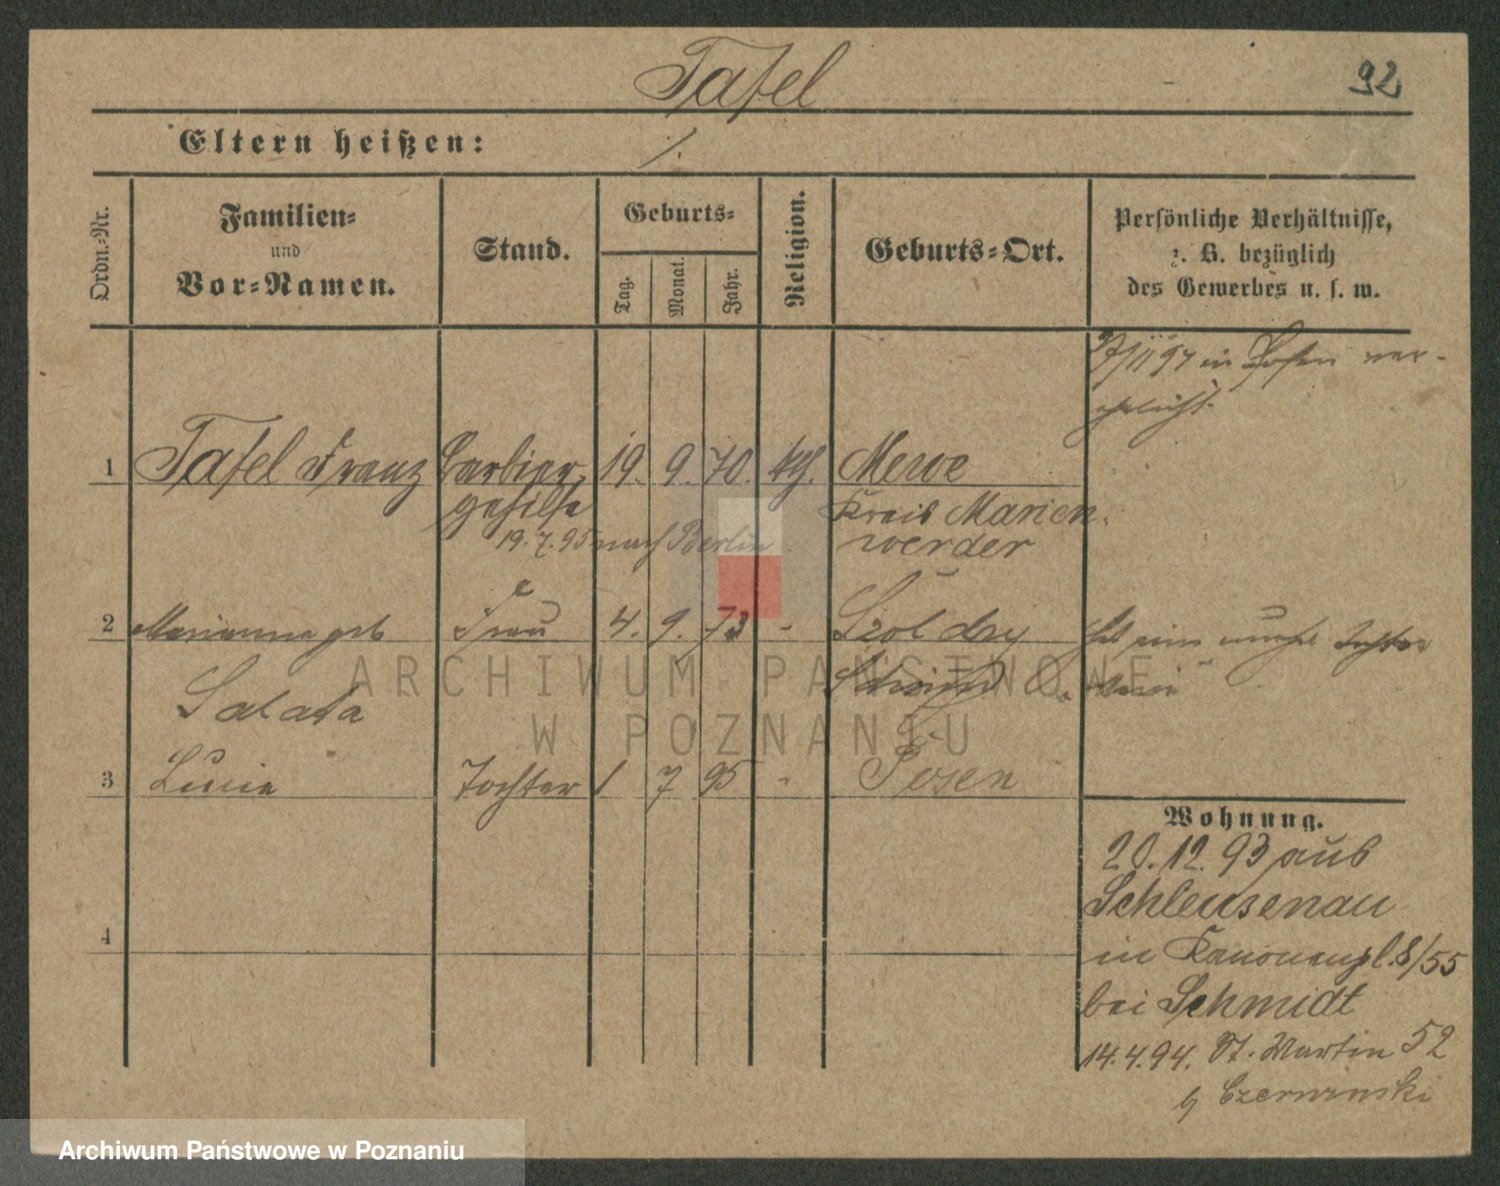 Tafel
92
Eltern heißen: ./.
Ordn.-Nr.
Familien-
und
Vor-Namen.
Stand.
Geburts-
Tag.
Monat.
Jahr.
Religion.
Geburts-Ort.
Persönliche Verhältnisse,
z. B. bezüglich
des Gewerbes u. s. w.
in Posen ver-
ehelicht.
1 Tafel Franz Barbier- 19. 9. 70. kth. Mewe
gehilfe Kreis Marien
19.7.95 nach Berlin werder
2 Marianne geb Frau 4. 9. 73 - Szoldry
Salata Schrimm
3 Lucia Tochter 1 7 95 - Posen
4
Wohnung.
20.12.93 aus
Schleusenau
in Kanonenpl. 8/55
bei Schmidt
14.4.94. St. Martin 52
b/ Czerwinski
ARCHIWUM PAŃSTWOWE
W POZNANIU
Archiwum Państwowe w Poznaniu